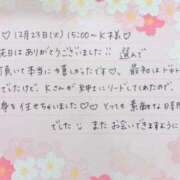 ♡12月23日(火) 15:00〜K様♡
先日はありがとうございました!! 選んで
頂いて本当に嬉しかったです♡ 最初は
でしたけど、Kさんが紳士にリードしてくれたので、
身を任せちゃいました♡ とっても素敵な日
でした♡ またお会いできますように